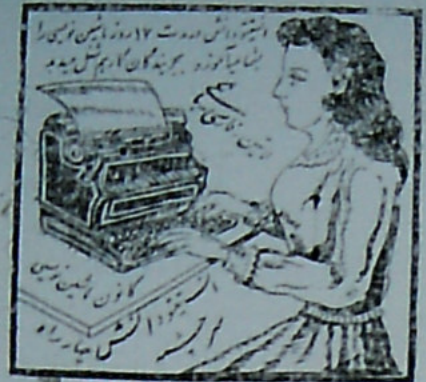 انستیتو دانش در مدت ۱۷ روز ماشین نویسی را
بشما میآموزد و بجویندگان کار هم شغل میدهد
کانون ماشین نویسی
انستیتو دانش چهار راه